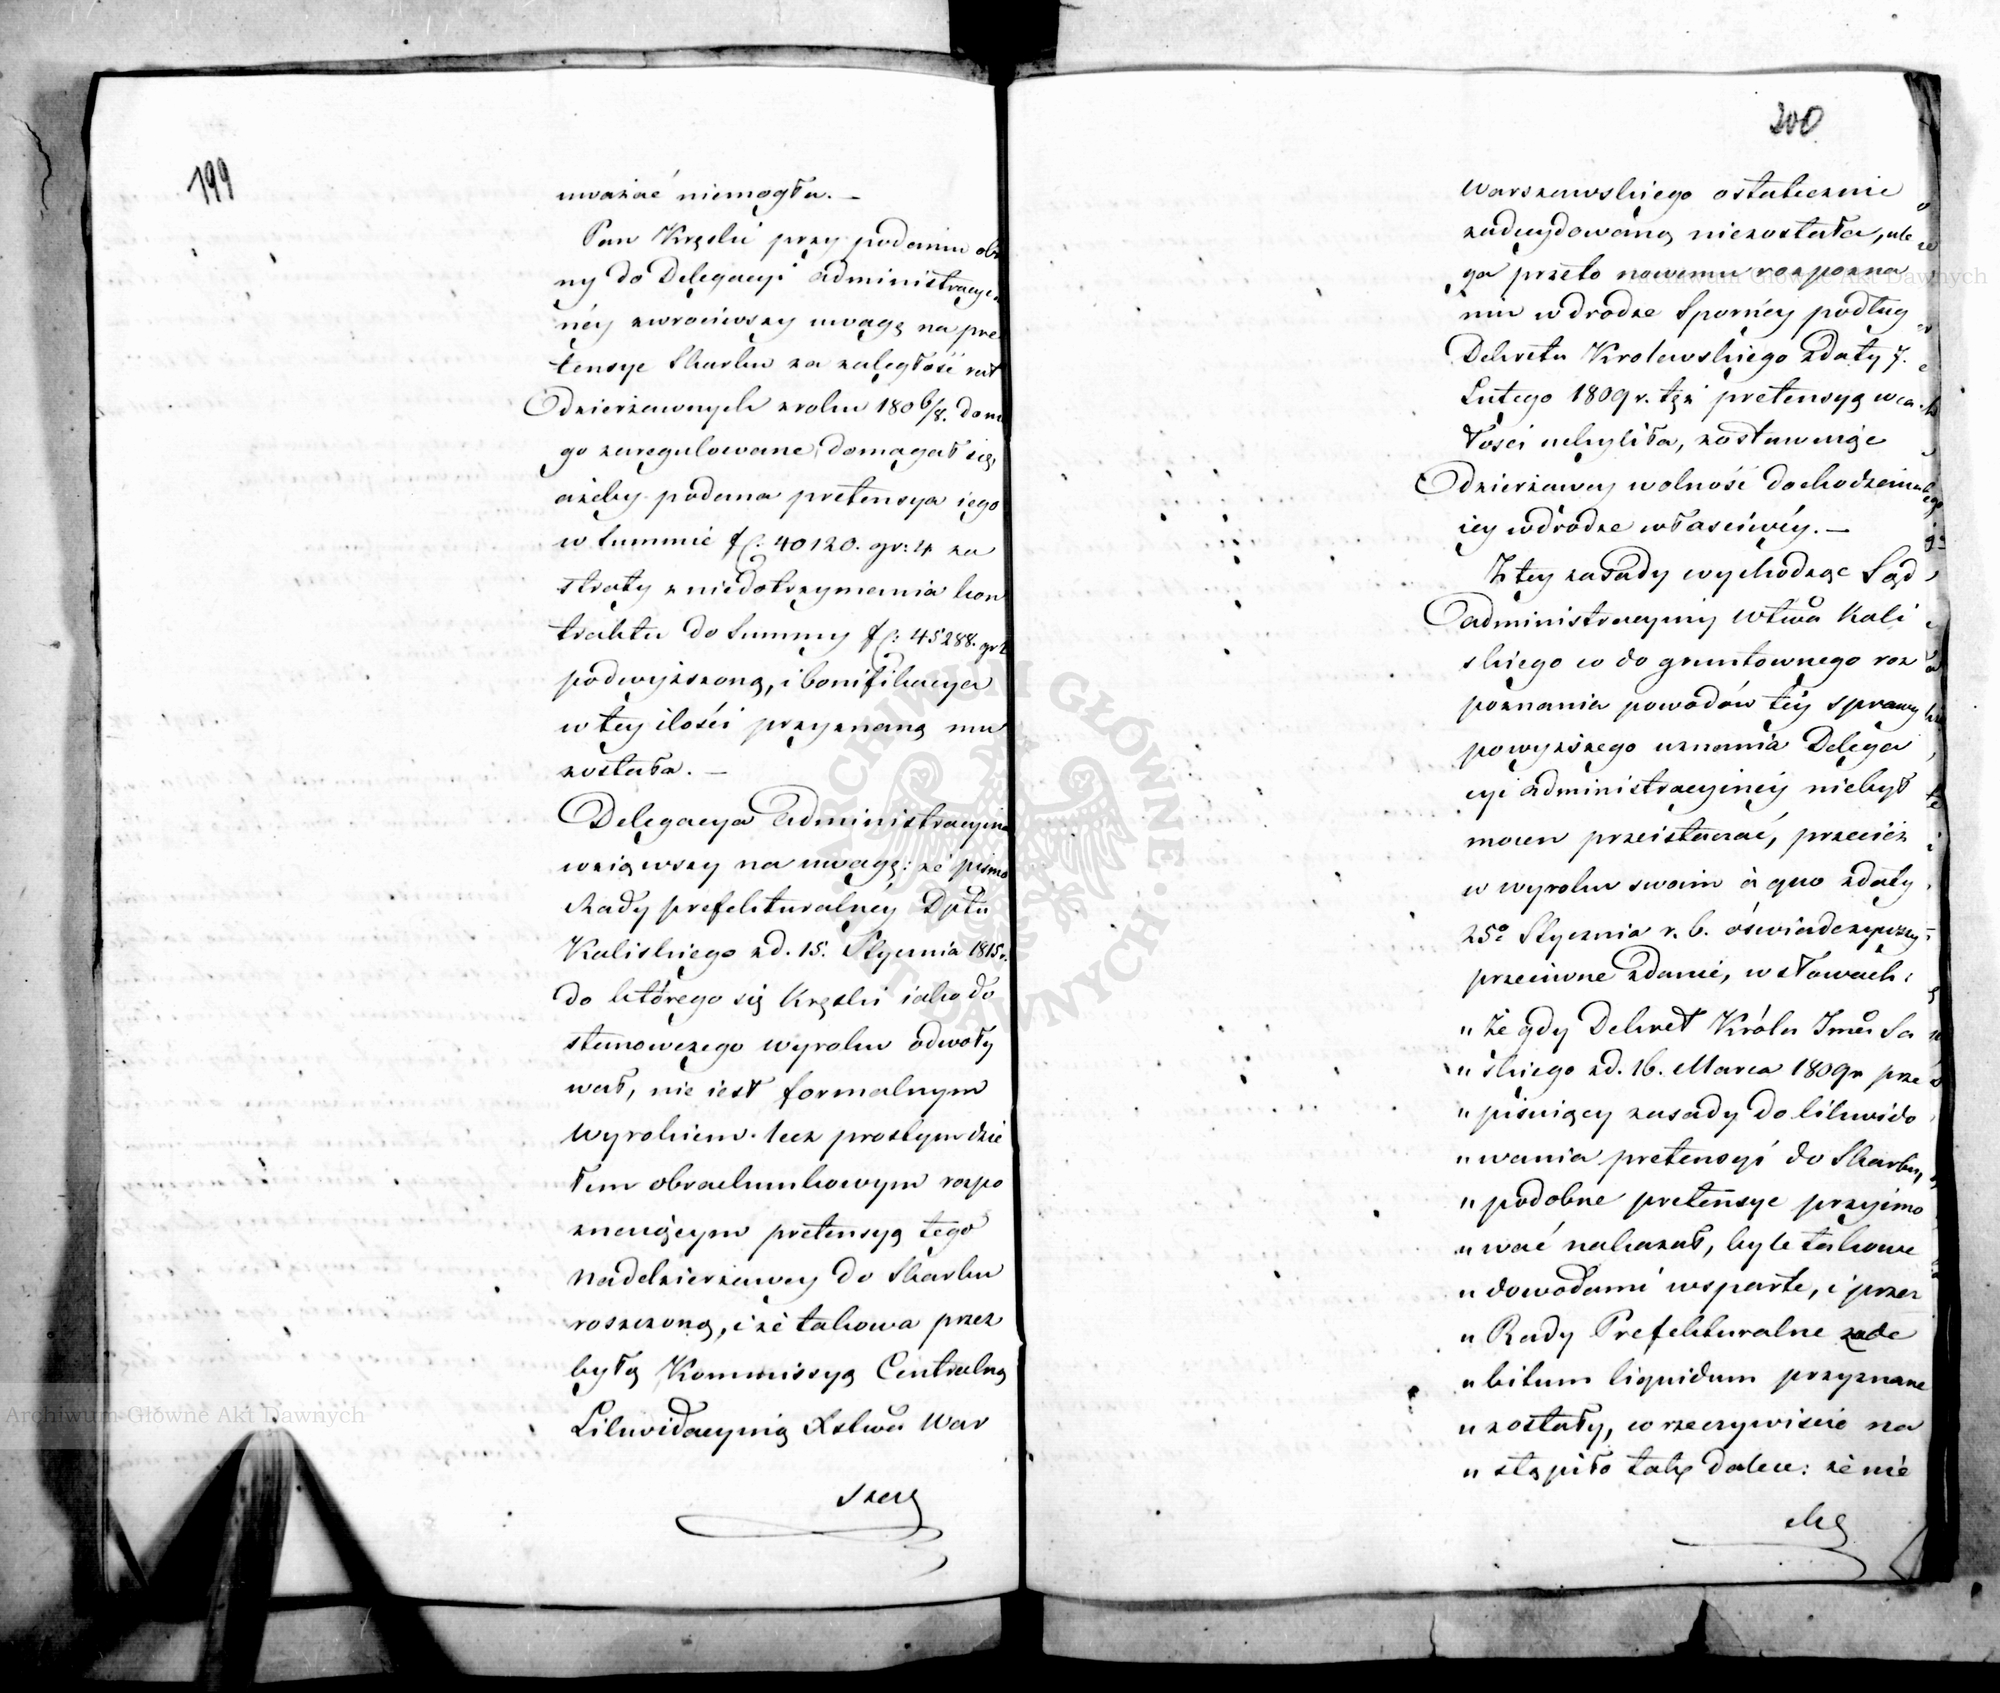 199
uważać niemogła. —
Pan Kręski przy podaniu obr
ny do Delegacyi administracyi
néy zwróciwszy uwagę na pre
tensye Skarbu za zaległość rat
Dzierżawnych z roku 1806/8. do
go zaregulowane, domagał się,
ażeby podana pretensya iego
w summie f. 40120. gr: 4 za
straty z niedotrzymania kon
traktu do Summy f: 45288. gr
podwyższoną, i bonifikacya
w tey ilości przyznaną mu
została. —
Delegacya Administracyina
wziąwszy na uwagę: że pismo
Rady prefekturalney Dptu
Kaliskiego z d. 15. Stycznia 1815 r.
do którego się Kręski iako do
stanowczego wyroku odwoły
wał, nie iest formalnym
wyrokiem. lecz prostym dzie
łem obrachunkowym rozpo
znaiącym pretensyą tego
Naddzierżawcy do Skarbu
roszczoną, i że takowa przez
byłą Kommissyą Centralną
Likwidacyiną Xstwa War
szaw
200
Warszawskiego ostatecznie
zadecydowaną niezostała, ule
ga przeto nowemu rozpozna
niu w drodze Sporney podług
Dekretu Krolewskiego z daty 7.
Lutego 1809 r. też pretensyą w ca
łości uchyliła, zostawuiąc
Dzierżawcy wolność dochodzenia
iey w drodze właściwéy. —
Z tey zasady wychodząc Sąd
Administracyiny Wtwa Kali
skiego co do gruntownego roz
poznania powodów téy sprawy
powyższego uznania Delega
cyi administracyinéy niebył
mocen przeistaczać, przecież
w wyroku swoim à quo z daty
25o Stycznia r. b. oświadczywszy
przeciwne zdanie, w słowach:
" Że gdy Dekret Króla Jmci Sa
" skiego z d. 16. Marca 1809 r prze
" pisuiący zasady do likwido
" wania pretensyi do Skarbu,
" podobne pretensye przyimo
" wać nakazał, byle takowe
" dowodami wsparte, i przez
" Rady Prefekturalne za de
" bitum liquidum przyznane
" zostały, co rzeczywiście na
" stąpiło tak dalece: że nie